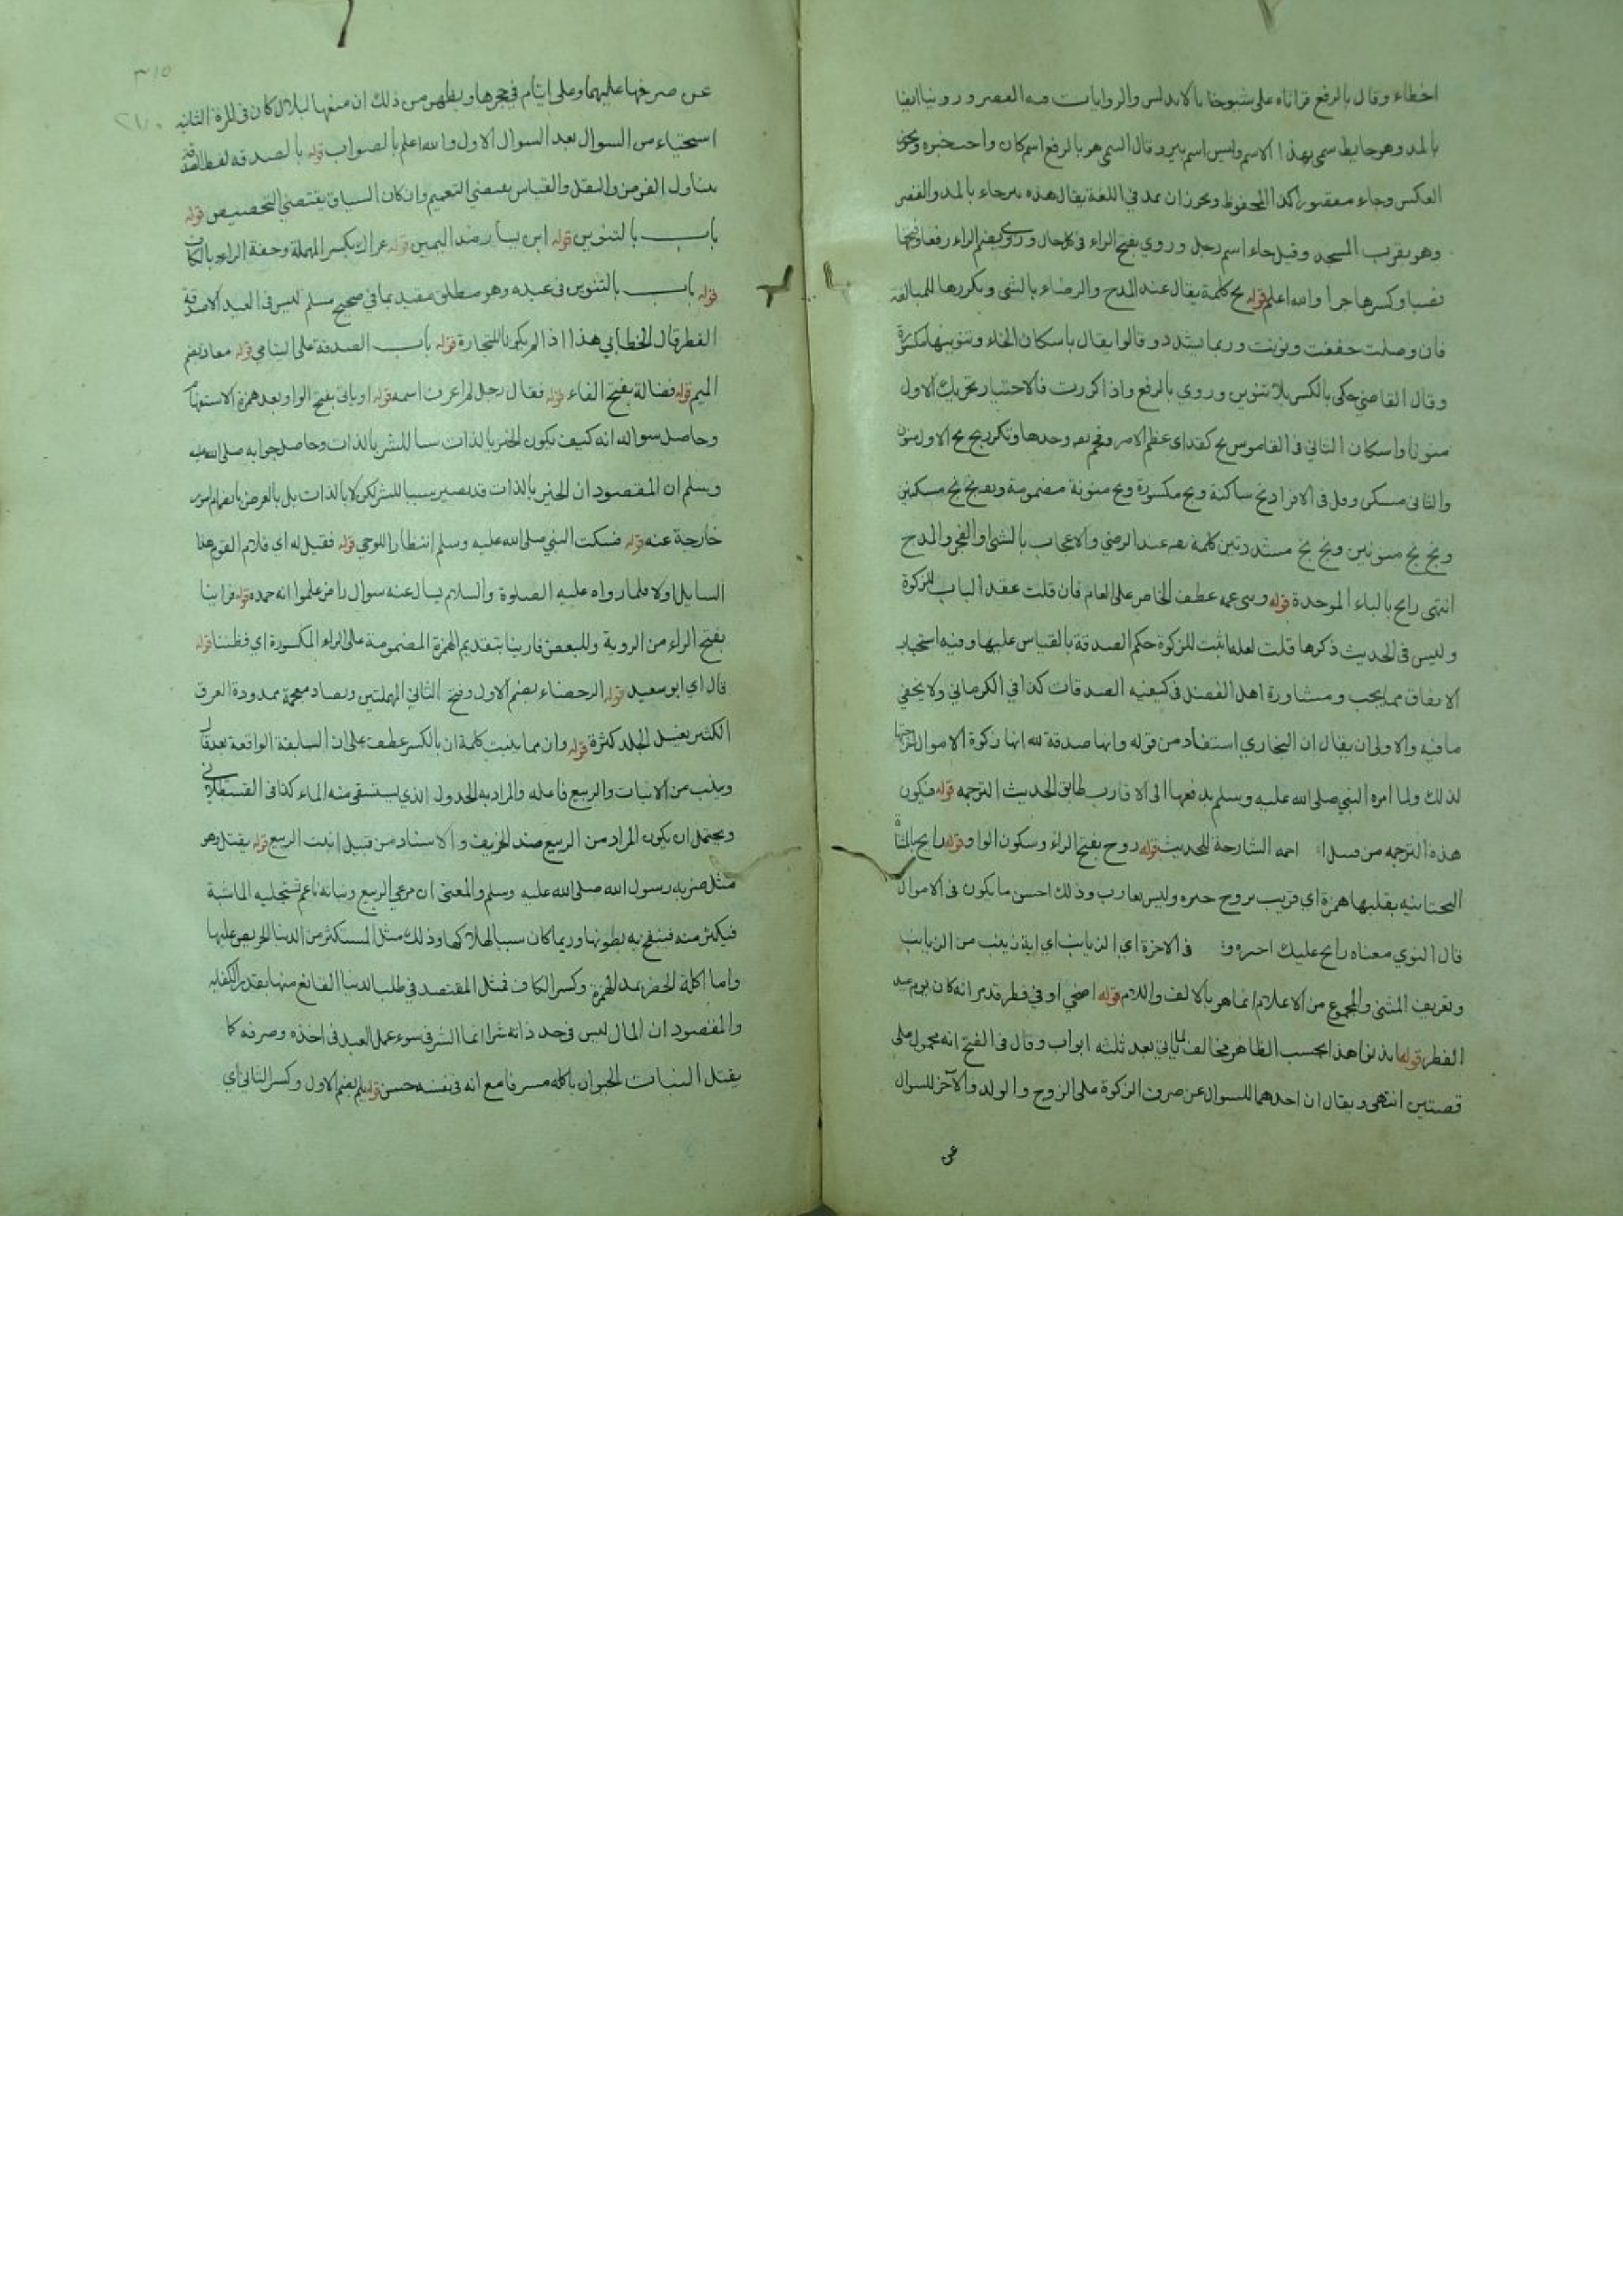 اخطاء وقال بالرفع قراناه على شيوخنا بالاندلس والروايات فيه القصر وروينا ايضا
بالمد وهو حايط سمي بهذا الاسم وليس اسم بير وقال التيمي هو بالرفع اسم كان واحب خبره ويجوز
العكس وجاء مقصورا كذا المحفوظ ويجوز ان يمد في اللغة يقال هذه بيرحاء بالمد والقصر
وهو بقرب المسجد وقيل حاء اسم رجل وروي بفتح الراء في كل حال وروي بضم الراء رفعا وفتحها
نصبا وكسرها جرا والله اعلم قوله بخ كلمة يقال عند المدح والرضاء بالشي ويكررها للمبالغة
فان وصلت خففت ونونت وربما يشدد وقالوا يقال باسكان الخاء وتنوينها مكسورة
وقال القاضي حكى بالكسر بلا تنوين وروي بالرفع واذا كررت فالاختيار تحريك الاول
منونا واسكان الثاني في القاموس بخ كقد اي عظم الامر وفخم وحدها وتكرر بخ بخ الاول منون
والثاني مسكن وقل في الافراد بخ ساكنة وبخ مكسورة وبخ منونة مضمومة وبخ بخ مسكنين
وبخ بخ منونين وبخ بخ مشددتين كلمة عند الرضي والاعجاب بالشي او الفخر والمدح
انتهى رابح بالباء الموحدة قوله وبني عمه عطف الخاص على العام فان قلت عقد الباب للزكوة
وليس في الحديث ذكرها قلت لعله اثبت للزكوة حكم الصدقة بالقياس عليها وفيه استحباب
الانفاق مما يحب ومشاورة اهل الفضل في كيفية الصدقات كذا في الكرماني ولا يخفي
ما فيه والاولى ان يقال ان البخاري استفاد من قوله وانها صدقة لله انها زكوة الاموال
لذلك ولما امره النبي صلى الله عليه وسلم بدفعها الى الاقارب طابق الحديث الترجمة قوله فيكون
هذه الترجمه من الشارحة للحديث قوله روح بفتح الراء وسكون الواو قوله رايح بالمثناة
التحتانيه بقلبها همزة اي قريب يروح خيره وليس بعازب وذلك احسن ما يكون في الاموال
قال النوي معناه رايح عليك اجره في الاخرة اي الزيانب اي اية زينب من الزيانب
وتعريف المثنى والمجموع من الاعلام انما هو بالالف واللام قوله اضحى او في فطر قد مر انه كان يوم عيد
الفطر قوله هذا بحسب الظاهر مخالف لما ياتي بعد ثلثه ابواب وقال في الفتح انه محمول على
قصتين انتهى ويقال ان احدهما للسوال عن صرف الزكوة على الزوج والولد والآخر للسوال
عن
عن صرفها عليهما وعلى ايتام في حجرها ويظهر من ذلك ان منعها لبلال كان في المرة الثانيه
استحياء من السوال بعد السوال الاول والله اعلم بالصواب قوله بالصدقه لفظ الصدقة
يتناول الفرض والنفل والقياس يقتضي التعميم وان كان السياق يقتضي التخصيص قوله
باب بالتنوين قوله ابن يسار ضد اليمين قوله عراك بكسر المهملة وخفة الراء وبالكاف
قوله باب بالتنوين في عبده وهو مطلق مقيد بما في صحيح مسلم ليس في العبد الا صدقة
الفطر قال الخطابي هذا اذا لم يكونا للتجارة قوله باب الصدقة على اليتامي قوله معاذ بضم
الميم قوله فضالة بفتح الفاء قوله فقال رجل لم اعرف اسمه قوله اوياتي بفتح الواو بعد همزة الاستفهام
وحاصل سواله انه كيف يكون الخير بالذات سببا للشر بالذات وحاصل جوابه صلى الله عليه
وسلم ان المقصود ان الخير بالذات قد يصير سببا للشر لكن لا بالذات بل بالعرض بانضمام امور
خارجة عنه قوله فسكت النبي صلى الله عليه وسلم انتظارا للوحي قوله فقيل له اي فلام القوم هذا
السايل اولا فلما رواه عليه الصلوة والسلام يسال عنه سوال راض علموا انه حمده قوله فراينا
بفتح الراء من الروية وللبعض فارينا بتقديم الهمزة المضمومة على الراء المكسورة اي فظننا قوله
قال اي ابو سعيد قوله الرحضاء بضم الاول وفتح الثاني المهملتين وبضاد معجمة ممدودة العرق
الكثير يغسل الجلد كثرة قوله وان مما ينبت كلمة ان بالكسر عطف على ان السابقة الواقعة بعد قال
وينبت من الانبات والربيع فاعله والمراد به الجدول الذي يستسقى منه الماء كذا في القسطلاني
ويحتمل ان يكون المراد من الربيع ضد الخريف والاسناد من قبيل انبت الربيع قوله يقتل وهو
مثل ضربه رسول الله صلى الله عليه وسلم والمعنى ان مرعي الربيع ونباته ناعم تستحليه الماشية
فيكثر منه فينتفخ به بطونها وربما كان سببا لهلاكها وذلك مثل المستكثر من الدنيا الحريص عليها
واما اكلة الخضر بمد الهمزة وكسر الكاف فمثل المقتصد في طلب الدنيا القانع منها بقدر الكفاية
والمقصود ان المال ليس في حد ذاته شرا انما الشر في سوء عمل العبد في اخذه وصرفه كما
يقتل النبات الحيوان باكله مسرفا مع انه في نفسه حسن قوله يلم بضم الاول وكسر الثاني اي